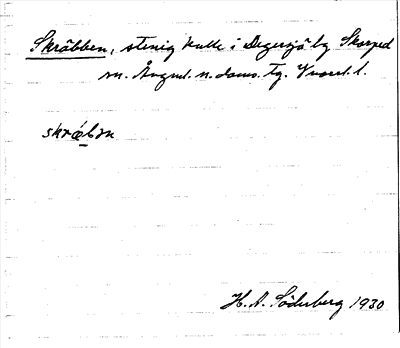 Skräbben, stenig kulle i Degersjö by Skorped
sn. Ångml. n. doms. tg. Vnorrl. l.
skræ̂bɔn
H. A. Söderberg 1930